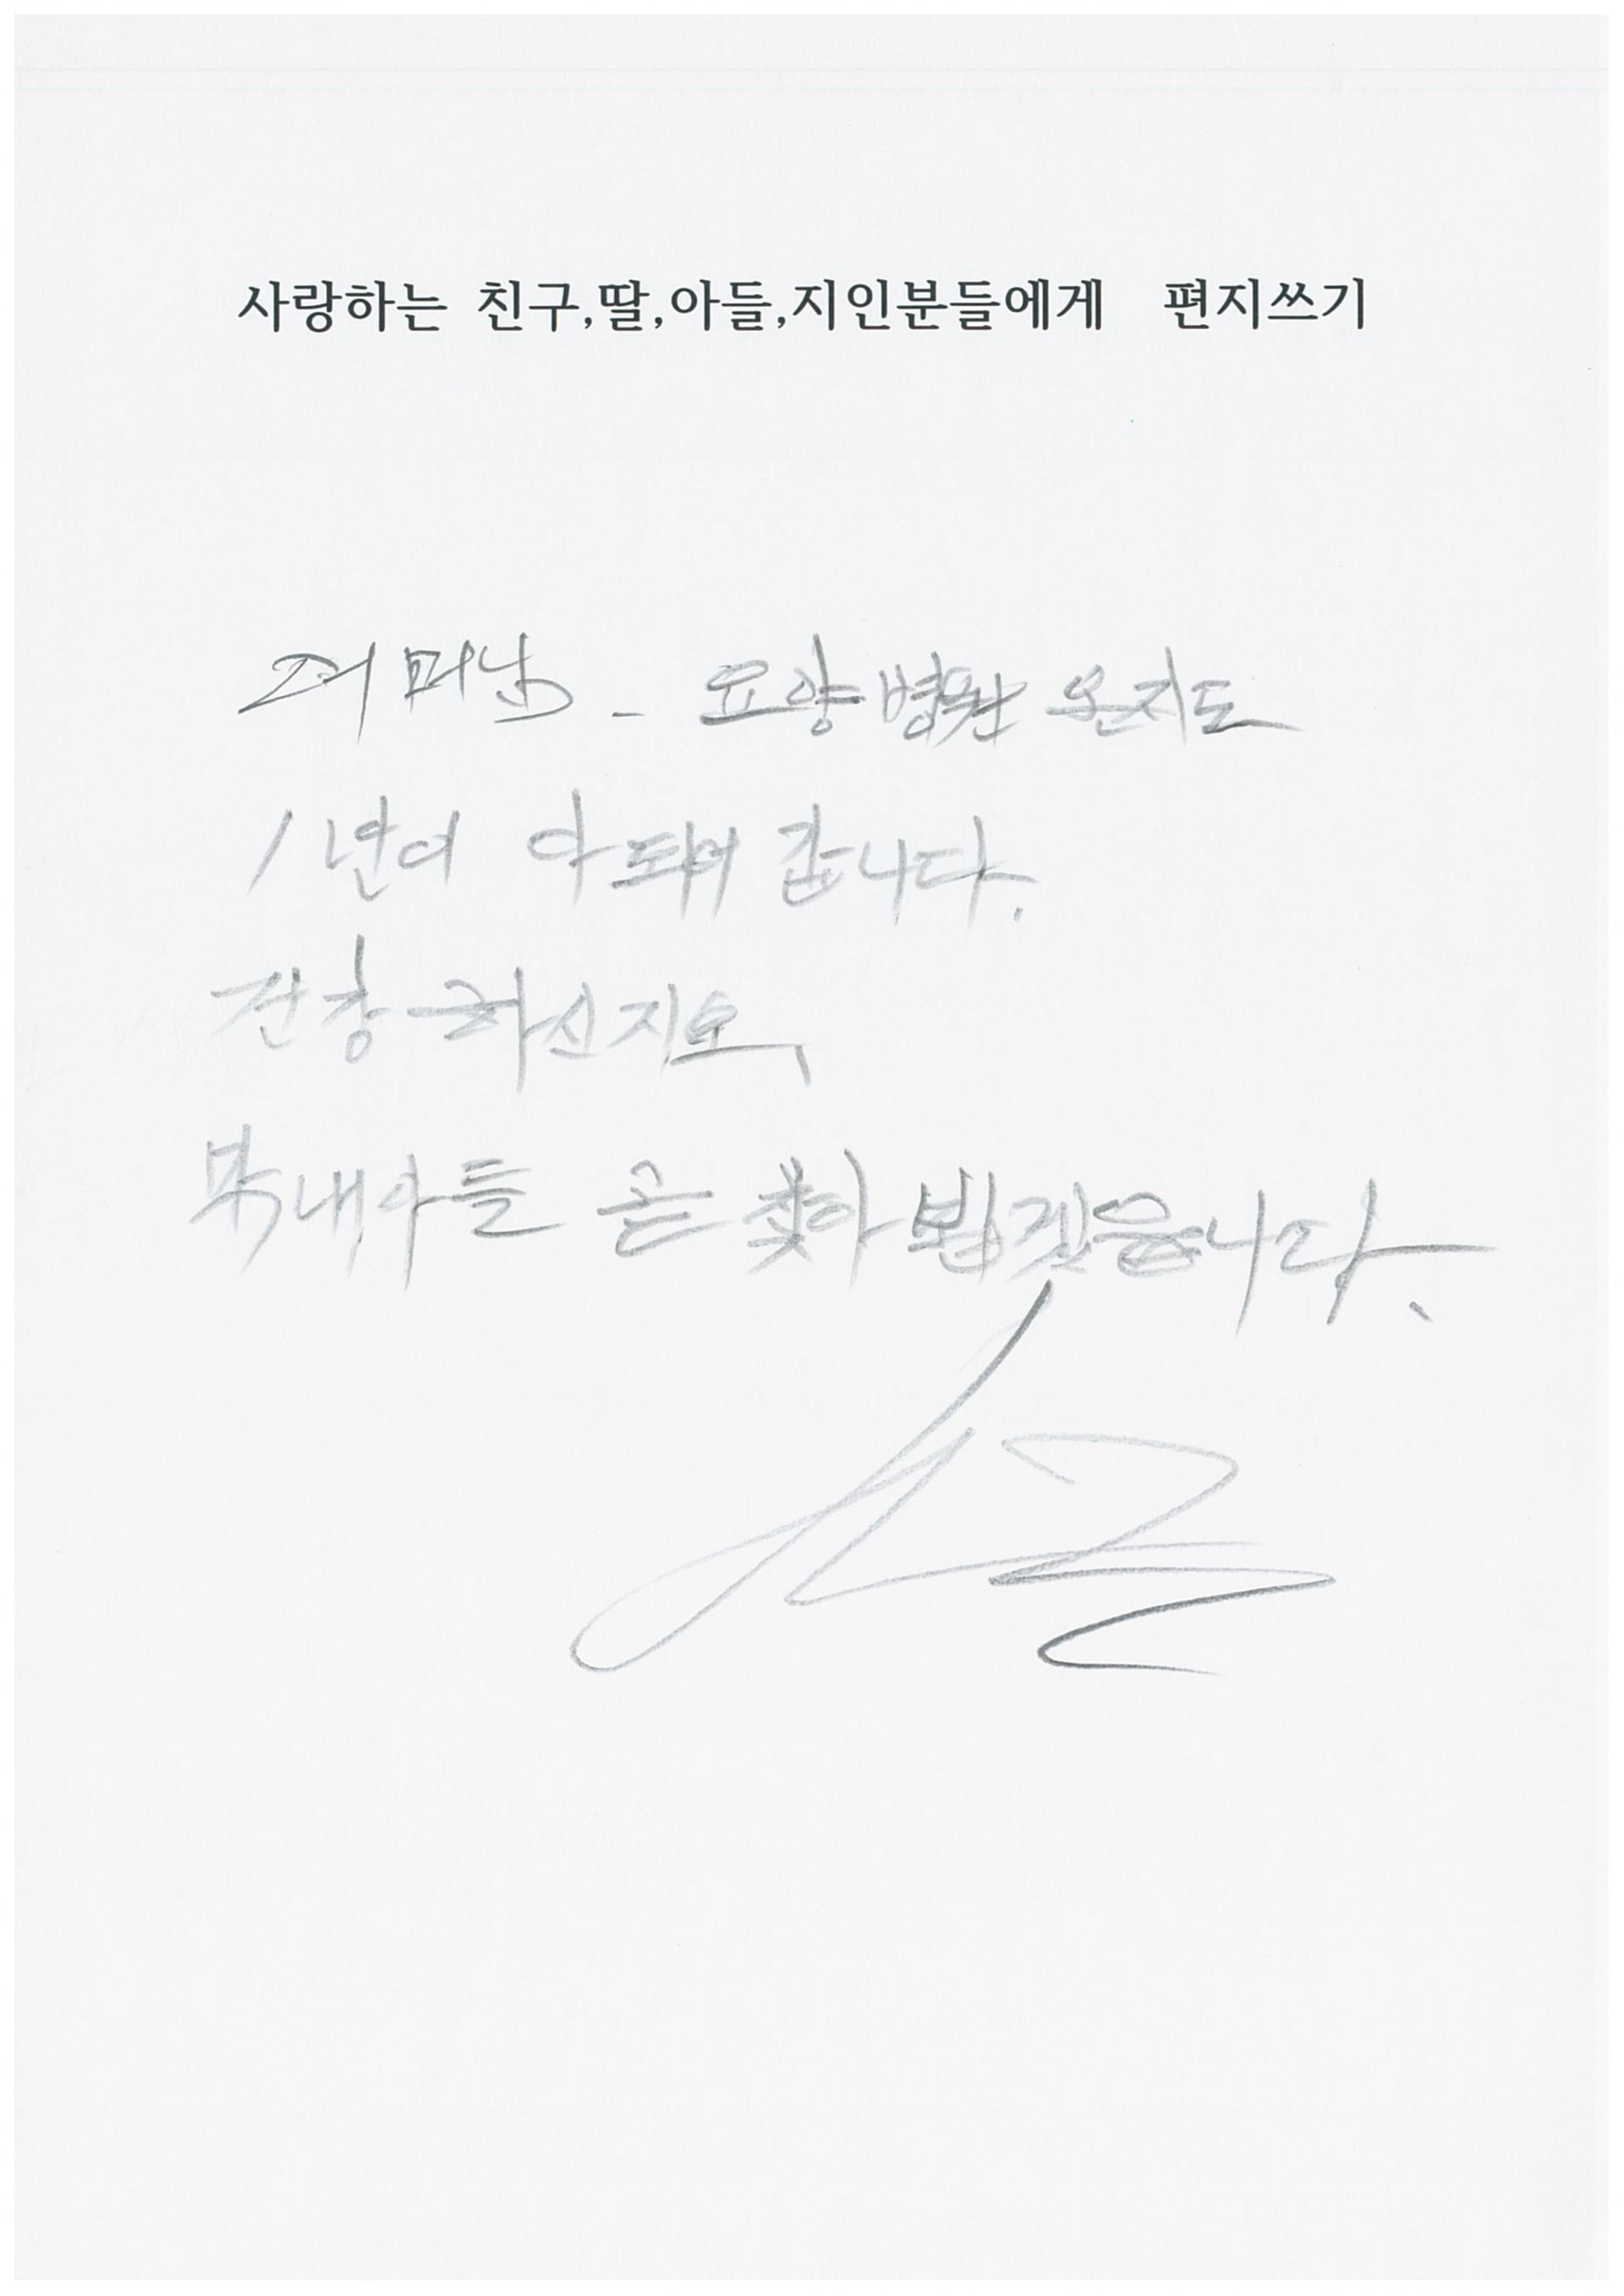 사랑하는 친구,딸,아들,지인분들에게 편지쓰기
어머님 - 요양병원 온지도
1년여 다되어 갑니다.
건강하신지요,
막내아들 곧 찾아 뵙겠읍니다.